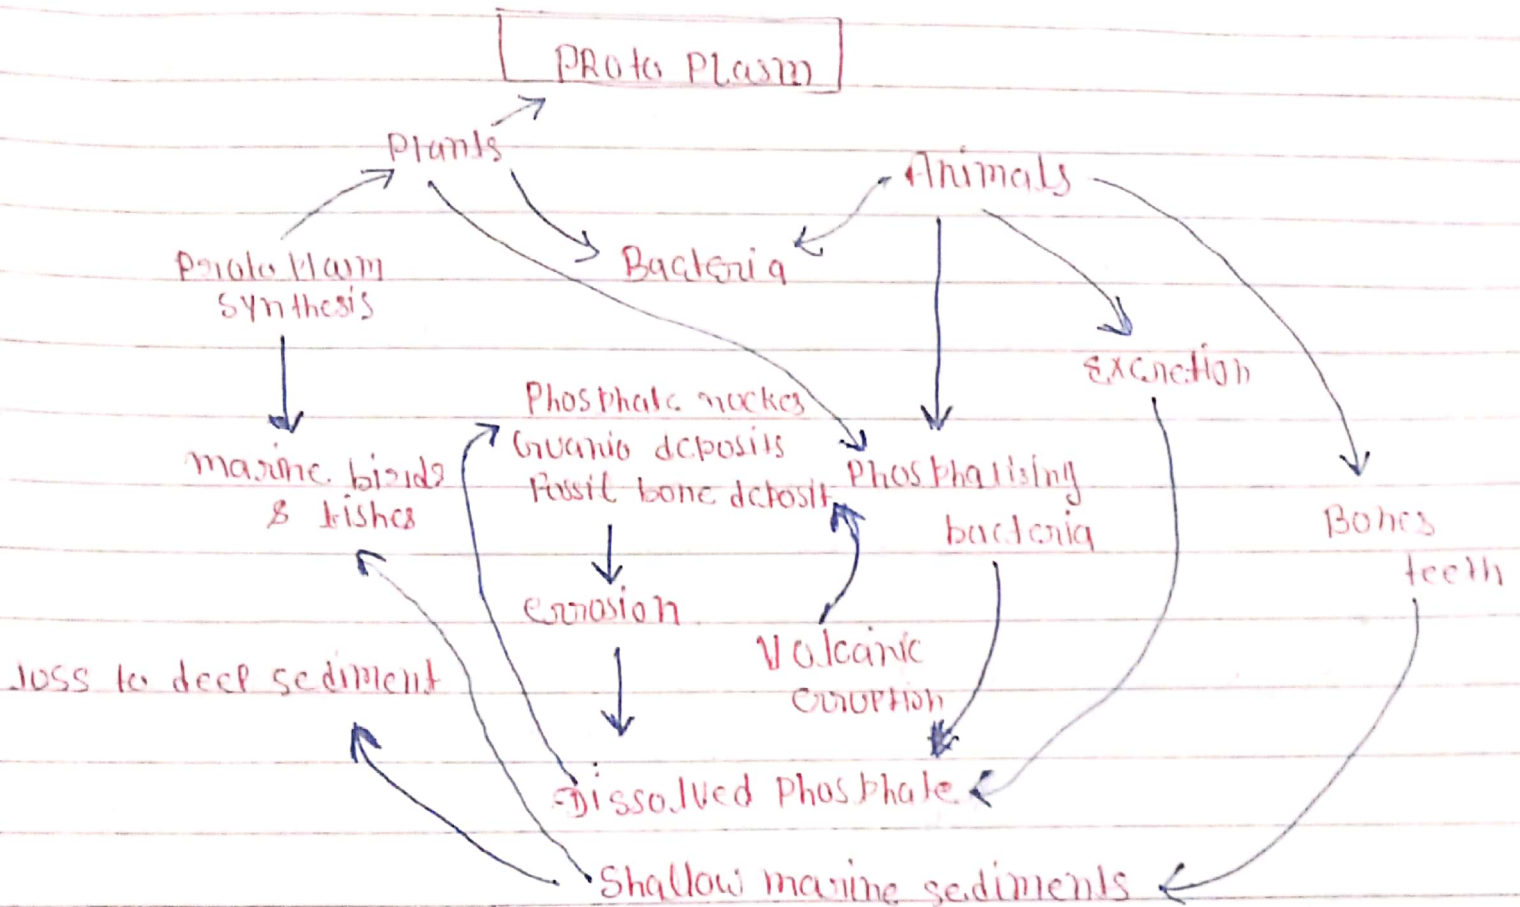 Proto Plasm
Plants
Animals
Protoplasm
synthesis
Bacteria
Excretion
Phosphate rockes
Guanio deposits
Fossil bone deposit
marine birds
& fishes
Phosphatising
bacteria
Bones
teeth
Errosion
Volcanic
erruption
loss to deep sediment
Dissolved Phosphate
Shallow marine sediments